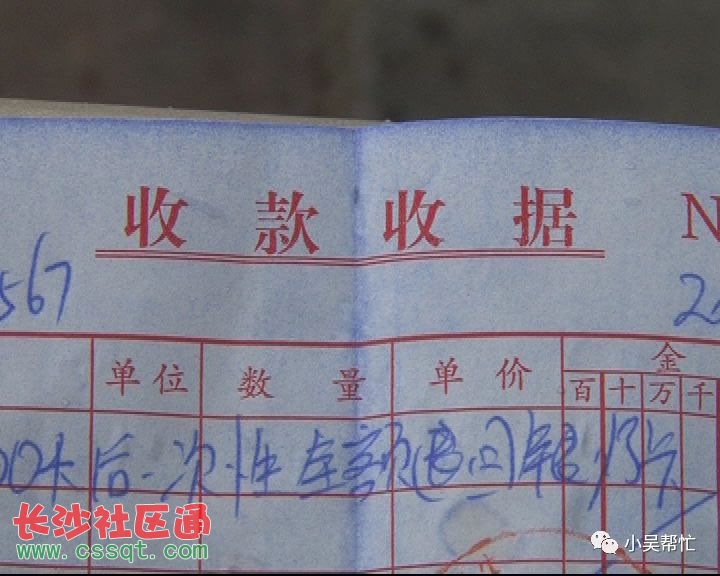 收款收据 N
567
单位 数量 单价 金
百 十 万 千
00K后一次性全额退回
长沙社区通
www.cssqt.com
小吴帮忙